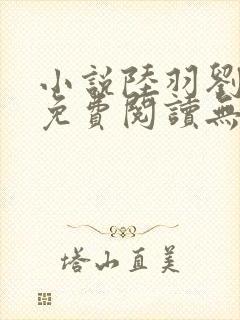 小說陸羽劉
免費閱讀無
塔山直美